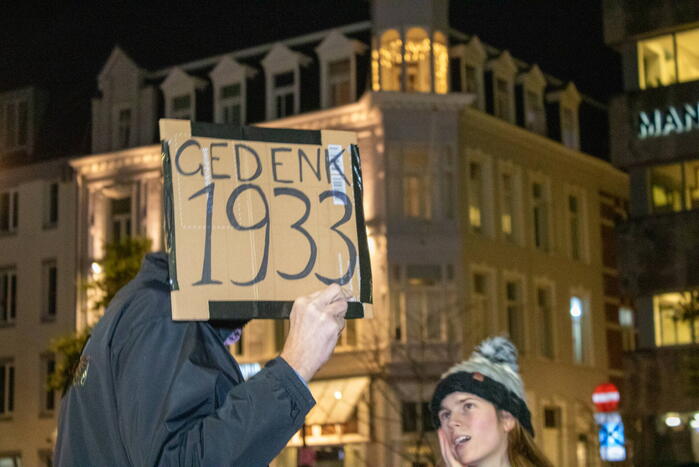 GEDENK
1933
MAN